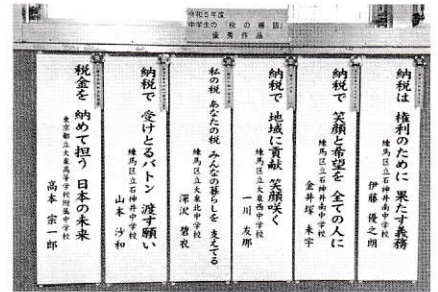 令和5年度
中学生の「税の標語」
優秀作品
納税は 権利のために 果たす義務
練馬区立石神井南中学校
伊藤 優之朗
納税で 笑顔と希望を 全ての人に
練馬区立石神井南中学校
金井塚 未宇
納税で 地域に貢献 笑顔咲く
練馬区立大泉西中学校
一川 友那
私の税 あなたの税 みんなの暮らしを 支えてる
練馬区立大泉北中学校
深沢 碧衣
納税で 受けとるバトン 渡す願い
練馬区立石神井中学校
山本 沙和
税金を 納めて担う 日本の未来
東京都立大泉高等学校附属中学校
高本 宗一郎